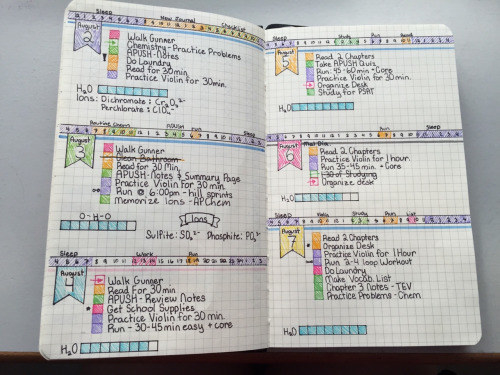 Sleep New Journal Checklist
August 2
Walk Gunner
Chemistry - Practice Problems
APUSH - Notes
Do Laundry
Read for 30 min.
Practice Violin for 30 min.
H2O
Ions: Dichromate: Cr2O7 2-
Perchlorate: ClO4 -
Routine APUSH Run Sleep
August 3
Walk Gunner
Clean Bathroom
Read for 30 Min.
APUSH - Notes & Summary Page
Practice Violin for 30 min
Run @ 6:00pm - hill sprints
Memorize Ions - AP Chem
O-H-O
Ions
Sulfite: SO3 2- Phosphite: PO3 3-
Sleep Work Run
August 4
Walk Gunner
Read for 30 min
APUSH - Review Notes
Get School Supplies
Practice Violin for 30 min.
Run - 30-45 min easy + core
H2O
Sleep Study Run Read
August 5
Read 2 Chapters
Take APUSH Quiz
Run: 45-60 min + Core
Practice Violin for 30 min.
Organize Desk
Study for PSAT
H2O
Run Sleep
August 6
Read 2 Chapters
Practice Violin for 1 hour
Run 35-45 min. + Core
Organize desk
H2O
Sleep Study Run
August 7
Read 2 Chapters
Organize Desk
Practice Violin for 1 Hour
Run 2-4 loop Workout
Do Laundry
Make Vocab. List
Chapter 3 Notes - TEV
Practice Problems - Chem
H2O